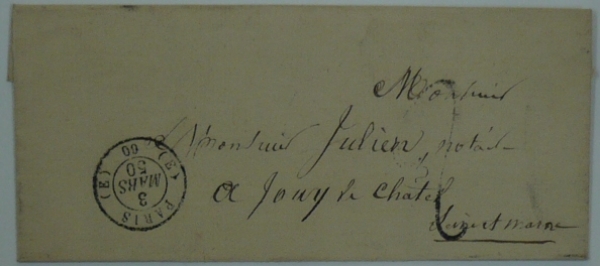 Monsieur
Monsieur Julien, notaire
a Jouy le Chatel
Seine et marne
PARIS (E) (E) 60
3
MARS
50